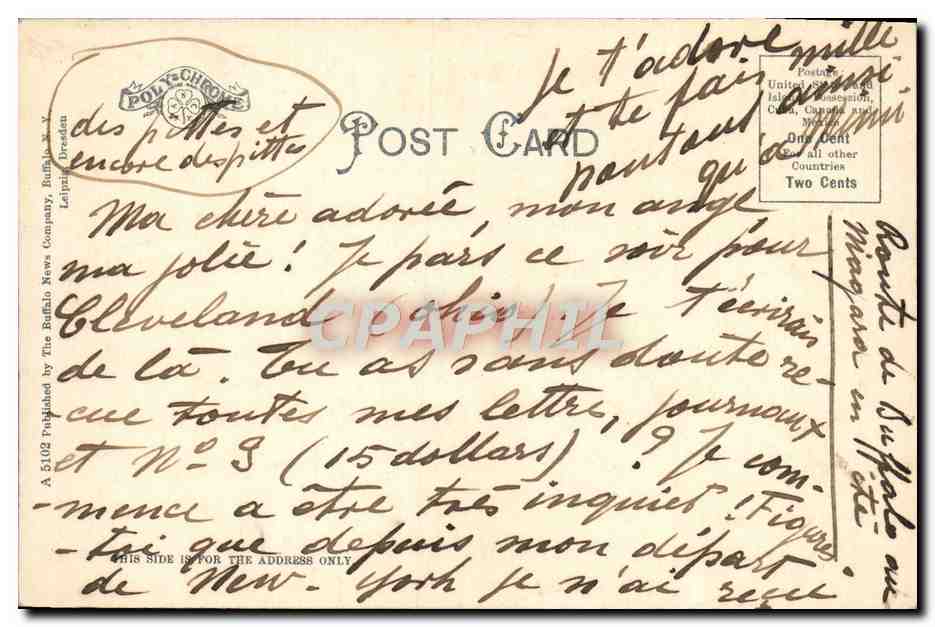 POLY-CHROME
des pittes et
encore des pittes
POST CARD
Je t'adore
et te fais mille
ainsi
qu'à
Postage
United States and
Island Possession,
Cuba, Canada and
Mexico
One Cent
For all other
Countries
Two Cents
Ma chère adorée, mon ange
ma jolie! Je pars ce soir pour
Cleveland (Ohio) Je t'écrirais
de là. Tu as sans doute re-
-cue toutes mes lettres, journaux
et No 3 (15 dollars) ? Je com-
-mence a être très inquiet! Figure
-toi que depuis mon départ
de New-York je n'ai reçu
THIS SIDE IS FOR THE ADDRESS ONLY
A 5102 Published by The Buffalo News Company, Buffalo N. Y.
Leipzig Dresden
Route de Buffalo au
Niagara en été.
CPAPHIL